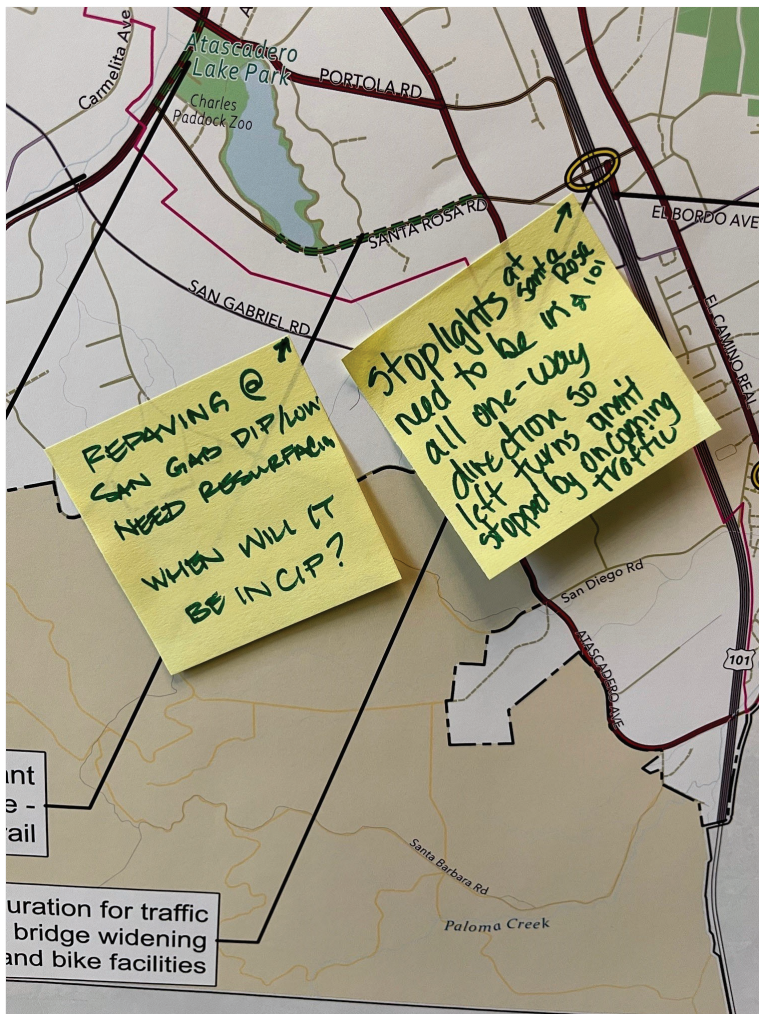 Carmelita Ave
Atascadero
Lake Park
Charles
Paddock Zoo
PORTOLA RD
SANTA ROSA RD
EL BORDO AVE
SAN GABRIEL RD
EL CAMINO REAL
REPAVING @
SAN GAB DIP/LOW
NEED RESURFACIN
WHEN WILL IT
BE IN CIP?
Stoplights at
Santa Rose
need to be in & 101
all one-way
direction so
left turns aren't
stopped by oncoming
traffic
San Diego Rd
ATASCADERO AVE
101
ant
e -
rail
Santa Barbara Rd
Paloma Creek
uration for traffic
bridge widening
and bike facilities